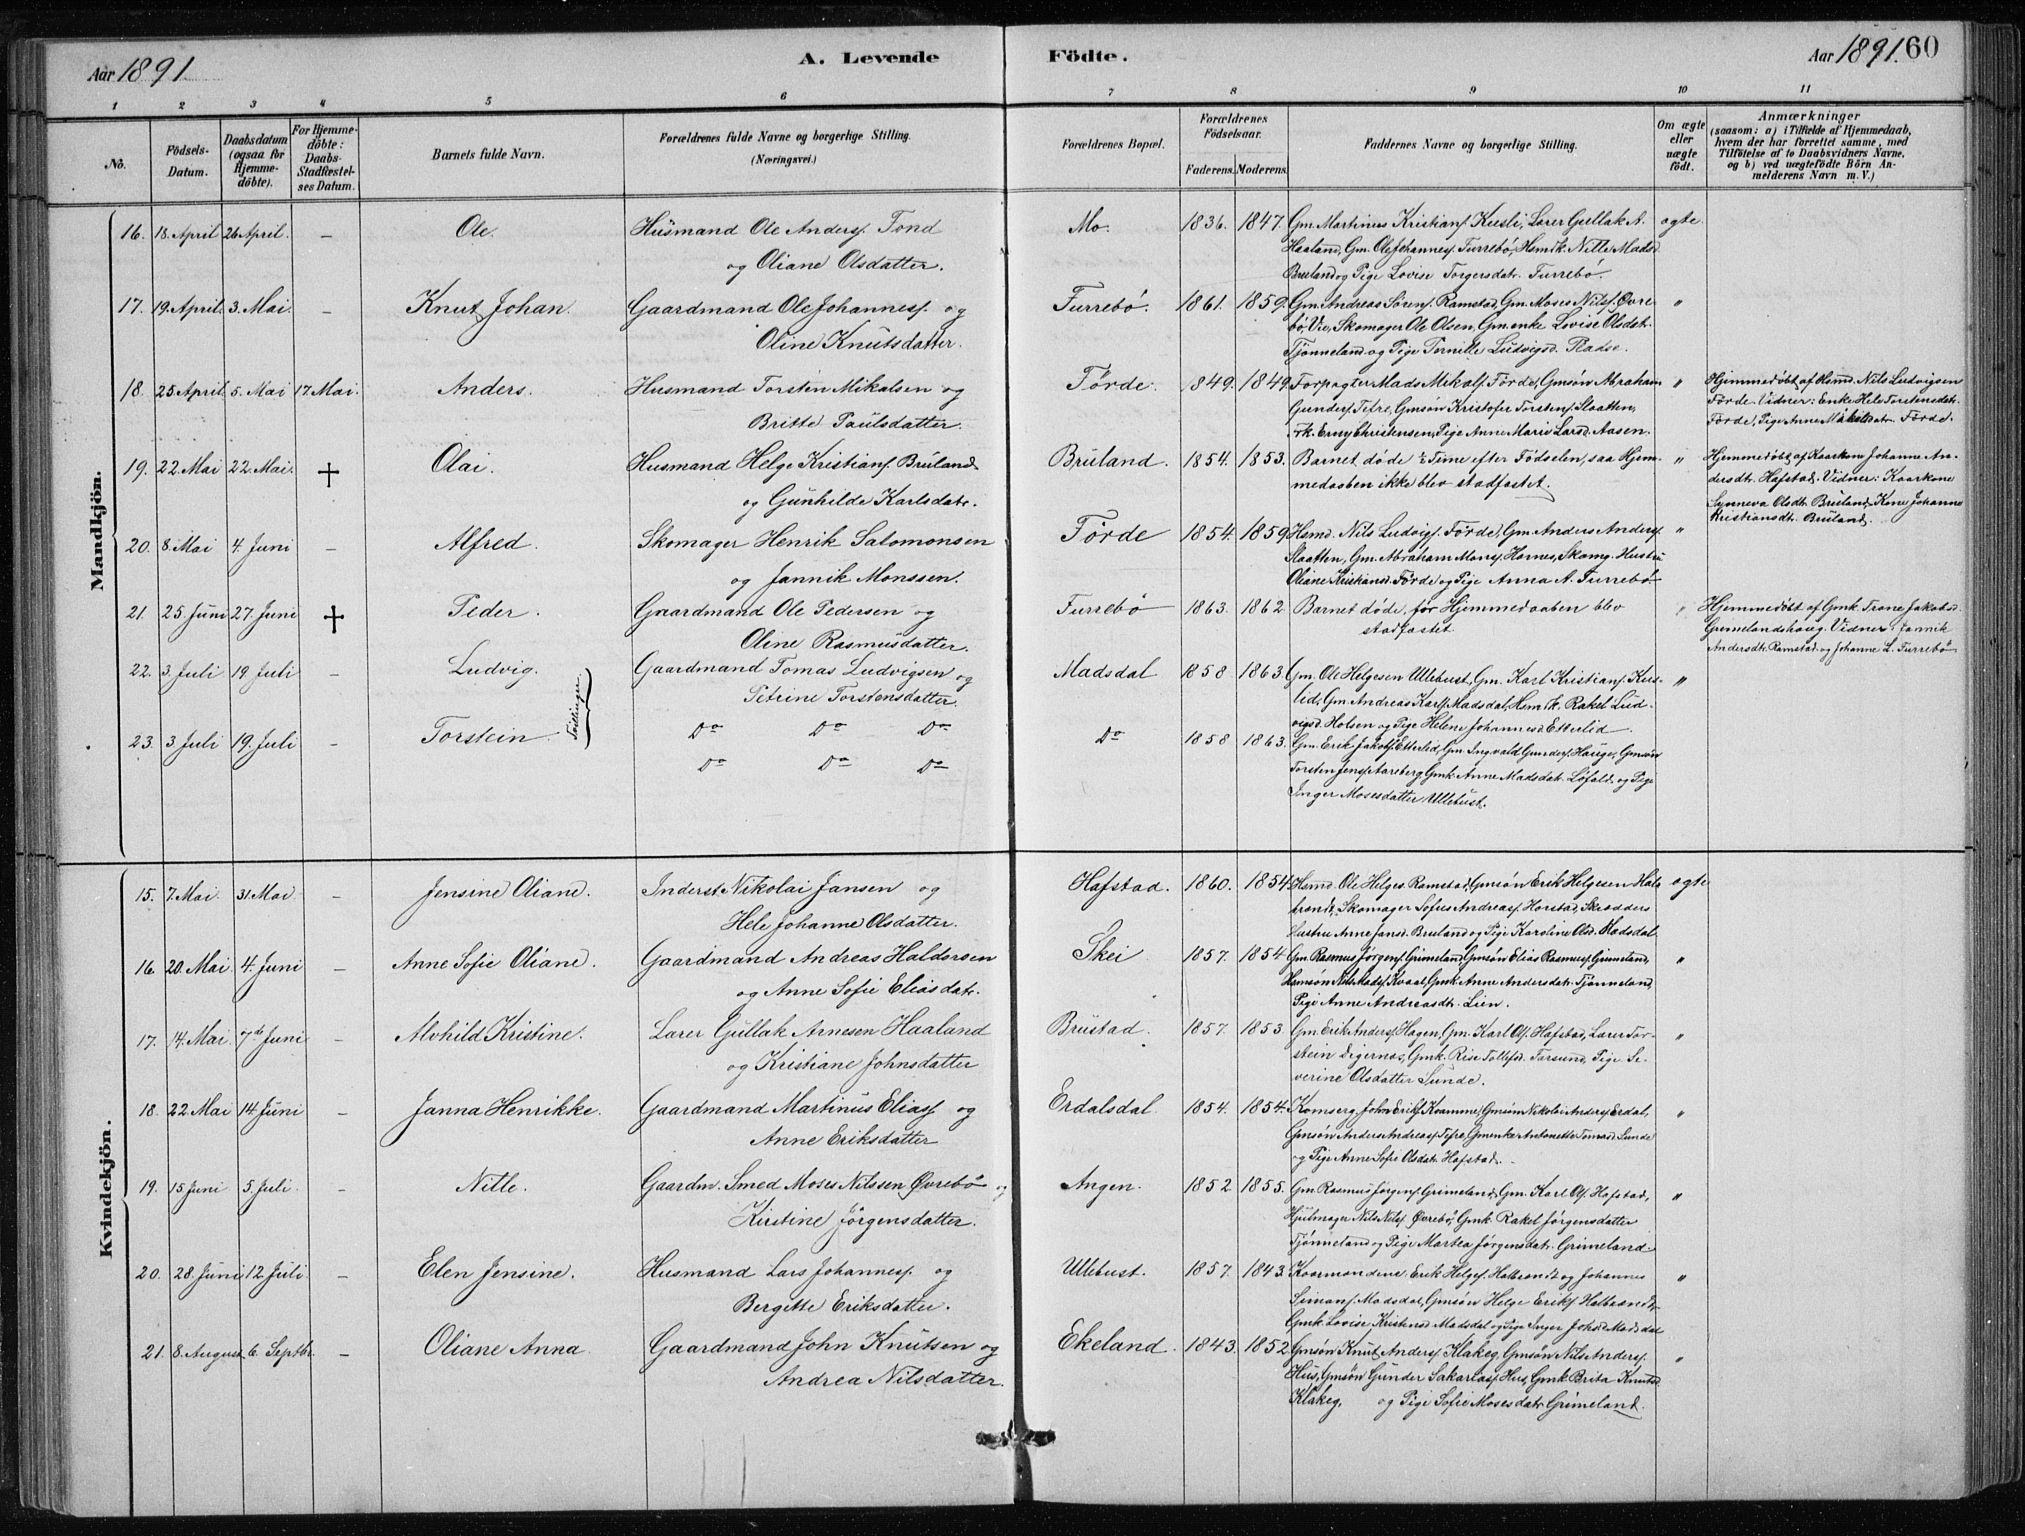 Aar 1891.
A. Levende
Födte.
Aar 1891. 60
1 2 3 4 5 6 7 8 9 10 11
No.
Födsels-
Datum.
Daabsdatum
(ogsaa for
Hjemme-
döbte).
For Hjemme-
döbte:
Daabs-
Stadfæstel-
ses Datum.
Barnets fulde Navn.
Forældrenes fulde Navne og borgerlige Stilling.
(Næringsvei.)
Forældrenes Bopæl.
Forældrenes
Födselsaar.
Faderens. Moderens.
Faddernes Navne og borgerlige Stilling.
Om ægte
eller
uægte
födt.
Anmærkninger
(saasom: a) i Tilfælde af Hjemmedaab,
hvem der har forrettet samme, med
Tilföielse af to Daabsvidners Navne,
og b) ved uægtefödte Börn An-
melderens Navn m. V.)
Mandkjön.
16. 18. April 26 April. – Ole. Husmand Ole Anders. Tond Mo. 1836. 1847. Gm. Martinus Kristians. Kusli, Lærer Gullak A. ægte
og Oliane Olsdatter. Haaland, Gm. Ole Johannes. Furrebö, Hsmdk. Nille Madsd.
Bruland og Pige Lovise Torgersdatr. Furrebö.
17. 19. April. 3. Mai. – Knut Johan. Gaardmand Ole Johannes. og Furrebö. 1861. 1859. Gm. Andreas Sörens. Ramstad, Gm. Moses Nils. Övre- "
Oline Knutsdatter. bö, Vie, Skomager Ole Olsen, Gm. enke Lovise Olsdatr.
Tjönneland og Pige Pernille Ludvigsd. Pladse.
18. 25. April. 5. Mai 17. Mai. Anders. Husmand Torsten Mikalsen og Förde. 1849. 1849. Forpagter Mads Mikals. Förde, Gmsön Abraham " Hjemmedöbt af Hsmd. Nils Ludvigsen
Britte Paulsdatter. Gunders. Tefre, Gmsön Kristofer Torstens. Slaatten, Förde. Vidner: Enke Hele Torstensdatr.
Frk. Erny Christensen, Pige Anne Marie Larsd. Aasen. Förde, Pige Anne Mikalsdatr. Förde.
19. 22. Mai 22. Mai. † Olai. Husmand Helge Kristians. Bruland Bruland. 1854. 1853. Barnet döde ½ Time efter Födselen, saa Hjem- " Hjemmedöbt af Kaarkone Johanne An-
og Gunhilde Karlsdatr. medaaben ikke blev stadfæstet. dersdtr. Hafstad. Vidner: Kaarkone
Synneva Olsdtr. Bruland, Kone Johanne
Kristiansdtr. Bruland.
20. 8. Mai 4. Juni – Alfred. Skomager Henrik Salomonsen Förde 1854. 1859. Hsmd. Nils Ludvigs. Förde, Gm. Anders Anders. "
og Jannik Monssen. Slaatten, Gm. Abraham Mons. Hornes, Skomg. Hustru
Oliane Kristiansd. Förde og Pige Anna A. Furrebö
21. 25. Juni 27. Juni † Peder. Gaardmand Ole Pedersen og Furrebö 1863. 1862. Barnet döde, för Hjemmedaaben blev " Hjemmedöbt af Gmk. Trone Jakobsd.
Oline Rasmusdatter. stadfæstet. Grimelandshaug. Vidner: Jannik
Andersdtr. Ramstad og Johanne L. Furrebö
22. 3. Juli 19. Juli – Ludvig. Gaardmand Tomas Ludvigsen Madsdal 1858 1863. Gm. Ole Helgesen Ullebust, Gm. Karl Kristians. Kus- "
og Petrine Torstensdatter. lid, Gm Andreas Karls. Madsdal, Hsm. k. Rakel Lud-
Tvillinger vigsd. Holsen og Pige Helene Johannesd. Etterlid.
23. 3 Juli 19. Juli – Torstein. Do Do Do Do 1858 1863. Gm. Erik Jakobs. Etterlid, Gm. Ingvald Gunders. Hauge, Gmsön
Do Do Do Torsten Jens. Aareberg, Gmk. Anne Madsdatr. Löfald, og Pige
Inger Mosesdatter Ullebust.
Kvindekjön.
15. 7. Mai. 31. Mai – Jensine Oliane. Inderst Nikolai Jansen og Hafstad. 1860. 1854. Hsmd. Ole Helges. Ramstad, Gmsön Erik Helgesen Hal- ægte
Hele Johanne Olsdatter. brandt, Skomager Sofus Andreas. Horstad, Skrædders
Hustru Anne Jansd. Bruland og Pige Karoline Olsd. Madsdal
16. 20. Mai. 4. Juni – Anne Sofie Oliane. Gaardmand Andreas Haldorsen Skei 1857. 1854 Gm. Rasmus Jörgens. Grimeland, Gmsön Elias Rasmus. Grimeland, "
og Anne Sofie Eliasdatr. Hsmsön Nils Mads. Kvaal, Gmk. Anne Andersdatr. Tjönneland
Pige Anne Andreasdtr. Lien.
17. 14. Mai 7de Juni – Alvhild Kristine. Lærer Gullak Arnesen Haaland Brustad. 1857. 1853. Gm. Erik Anders. Hagen, Gm. Karl Ols. Hafstad, Lærer Tor- "
og Kristiane Johnsdatter stein Digernæs, Gmk. Rise Tollefsd. Farsund, Pige Se-
verine Olsdatter Sunde.
18. 22. Mai 14. Juni – Janna Henrikke. Gaardmand Martinus Elias. og Erdalsdal. 1854. 1854. Komserg. John Eriks. Kvamme, Gmsön Nikolai Anders. Erdal, "
Anne Eriksdatter Gmsön Anders Andreas. Tefre, Gmenke Antonette Tomasd. Sunde
og Pige Anne Sofie Olsdatr. Hafstad.
19. 15. Juni 5. Juli. – Nille. Gaardm. Smed Moses Nilssen Övrebö og Angen. 1852. 1855. Gm Rasmus Jörgens. Grimeland, Gm. Karl Ols. Hafstad, "
Kirstine Jörgensdatter. Hjulmager Nils Nils. Övrebö, Gmk. Rakel Jörgensdatter
Tjönneland og Pige Martea Jörgensdatr. Grimeland.
20. 28. Juni 12. Juli. – Elen Jensine. Husmand Lars Johannes. og Ullebust. 1857. 1843. Kaarmændene Erik Helges. Halbrandt og Johannes "
Bergitte Eriksdatter. Simons. Madsdal, Gmsön Helge Eriks. Halbrandt,
Gmk. Lovise Kristensd. Madsdal og Pige Inger Johsd. Madsdal
21. 8. August. 6. Septbr. – Oliane Anna. Gaardmand John Knutsen og Ekeland. 1843. 1852. Gmsön Knut Anders. Klakeg, Gmsön Nils Anders. "
Andrea Nilsdatter. Hus, Gmsön Gunder Sakarias. Hus, Gmk. Brita Knutsd.
Klakeg, og Pige Sofie Mosesdatr. Grimeland.